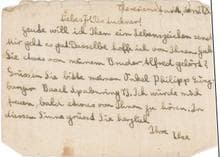 Theresienstadt,
Heute will ich Ihnen ein Lebenszeichen senden.
Mir geht es gut. Dasselbe hoffe ich von Ihnen. Haben
Sie etwas von meinem Bruder Alfred gehört?
Grüssen Sie bitte meinen Onkel Philipp
Basel Ich würde mich
freuen, bald etwas von Ihnen zu hören. In
diesem Sinne grüsst Sie herzlich
Ihre Ilse